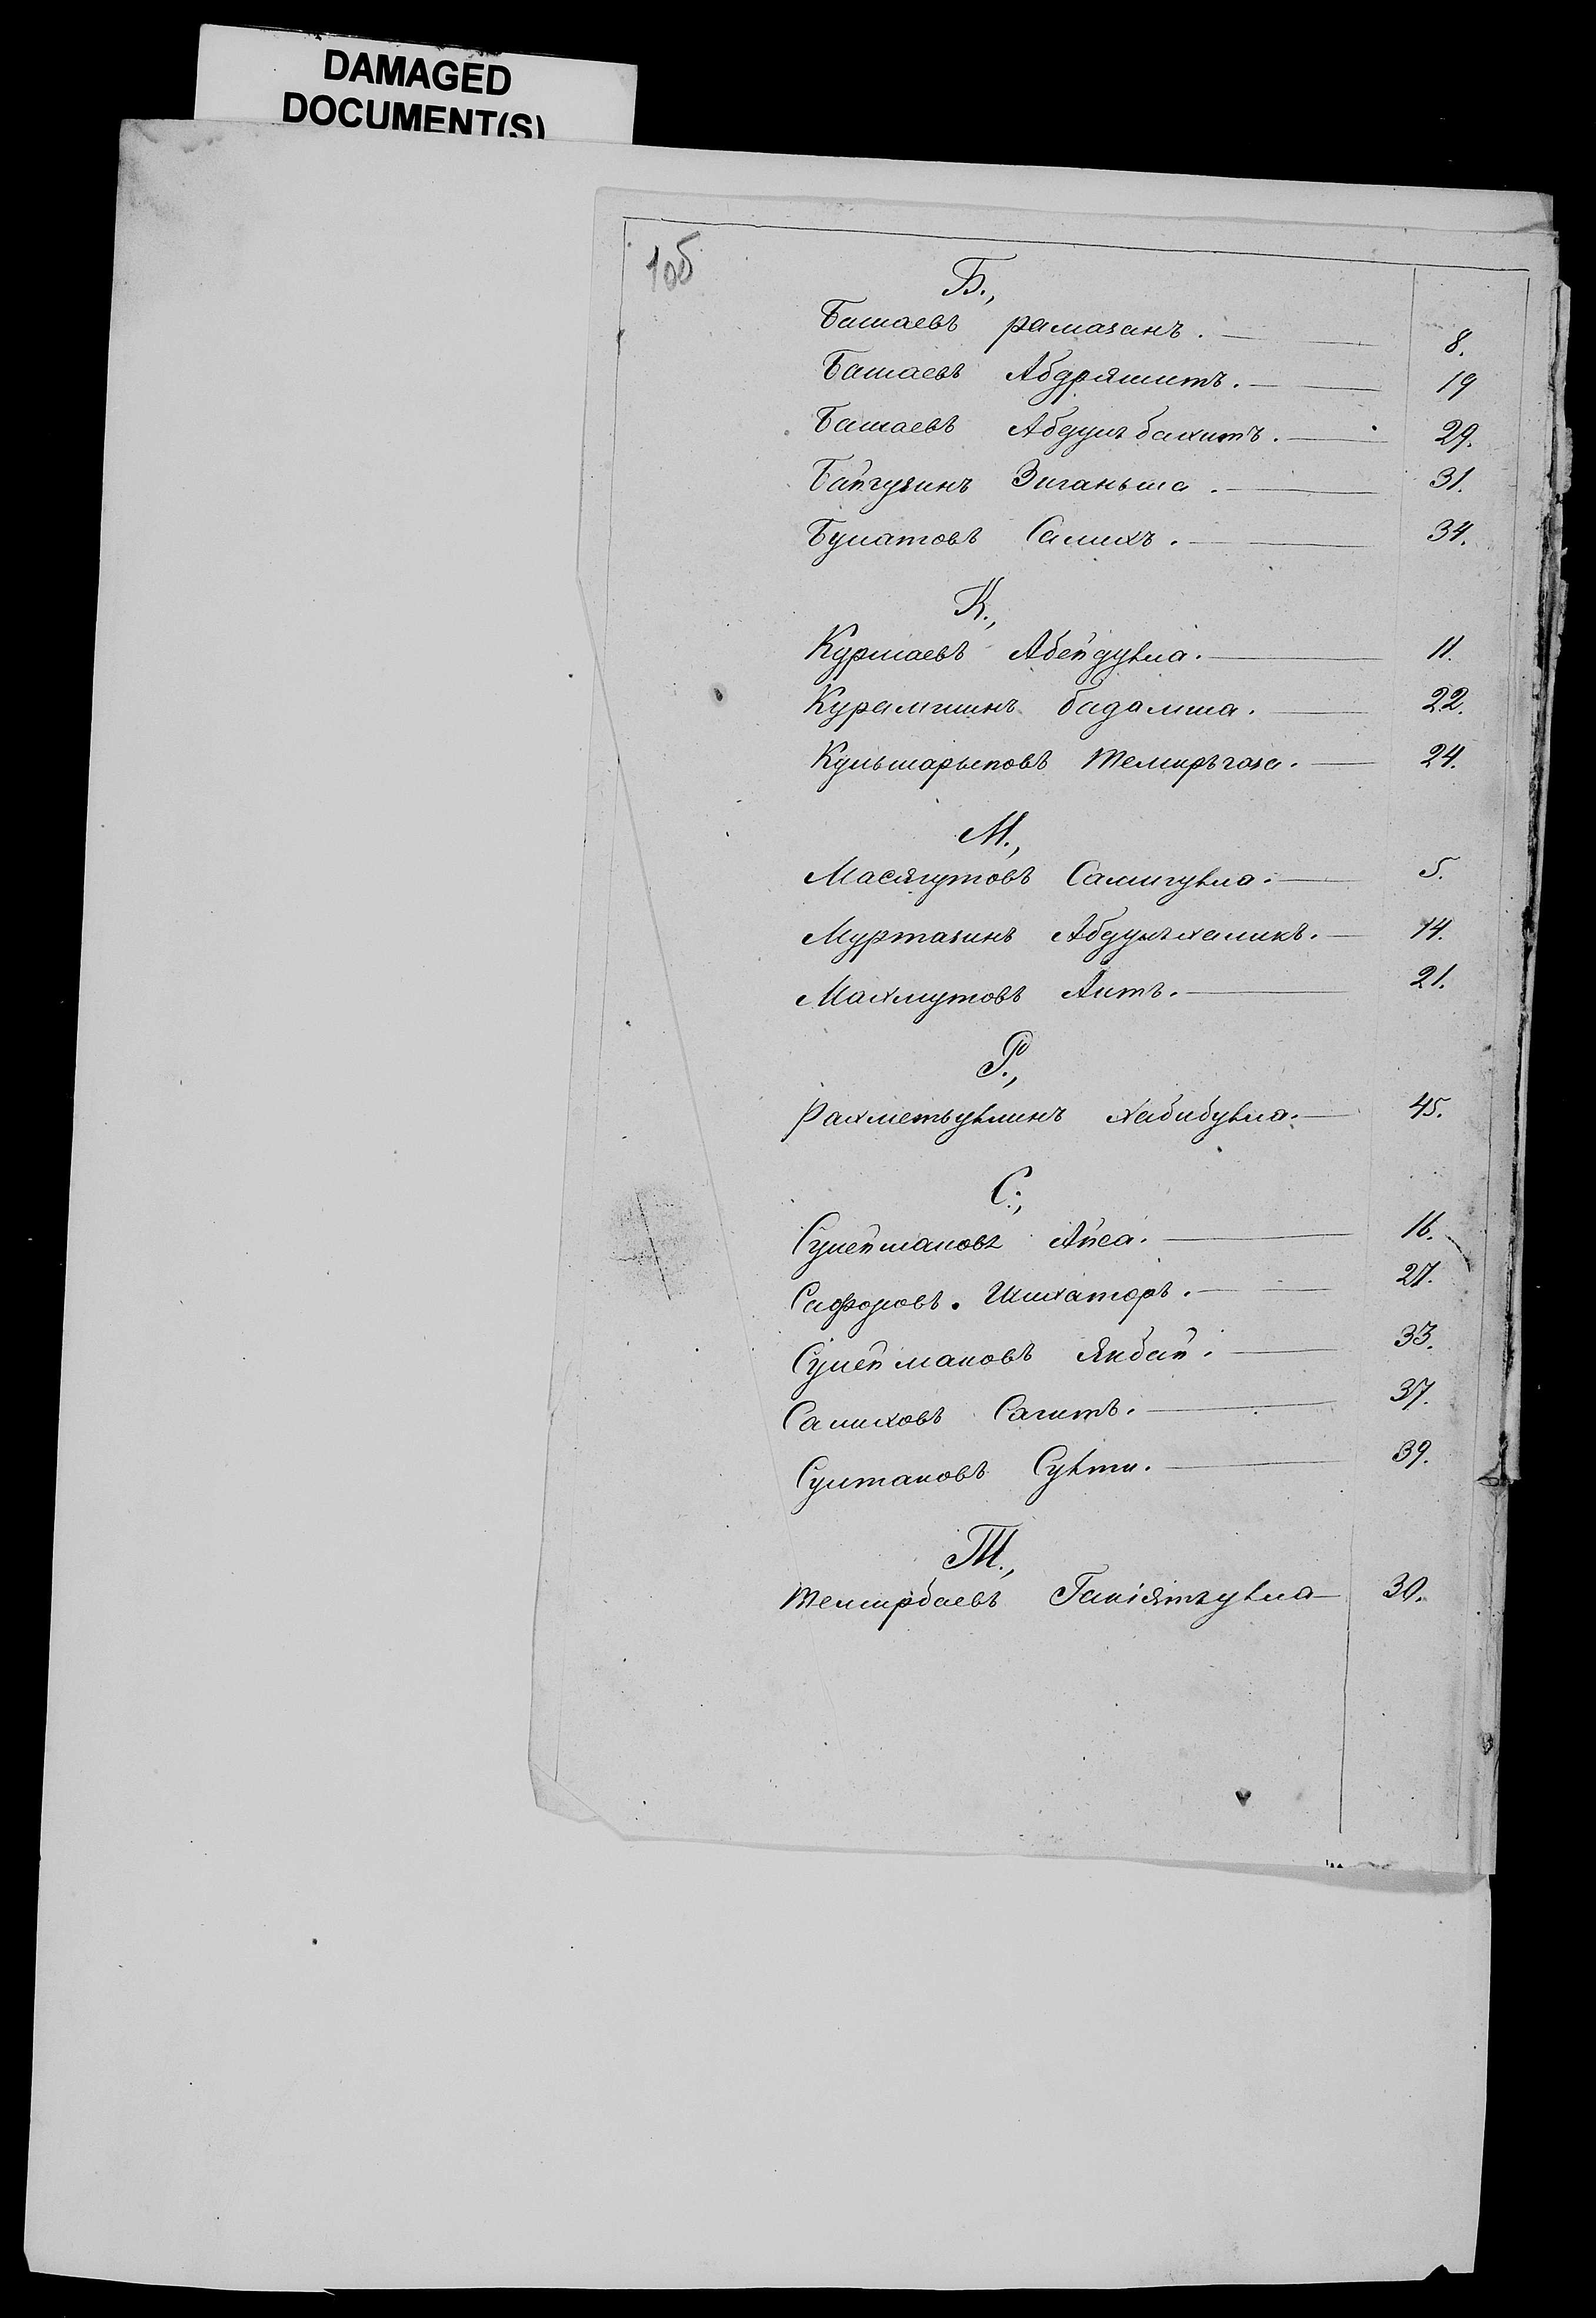 DAMAGED
DOCUMENT(S)
105
Б.,
Башаевъ рамазанъ. 8.
Башаевъ Абдряшитъ. 19
Башаевъ Абдулъ бахитъ. 29.
Байгузинъ Зиганьша. 31.
Булатовъ Салихъ. 34.
К.,
Курмаевъ Абейдулла. 11.
Курамшинъ бадамша. 22.
Кульшарыповъ Темиръгаза. 24.
М.,
Масягутовъ Самигулла. 5.
Муртазинъ Абдулъхаликъ. 14.
Махмутовъ Аитъ. 21.
Р.,
Рахметьуллинъ Хабибулла. 45.
С.,
Сулеймановъ Айса. 16.
Сафаровъ. 27.
Сулеймановъ Якбай. 33.
Салиховъ Сагитъ. 37.
Султановъ Султи. 39.
Т.,
Темирбаевъ Гаміятъулла 30.